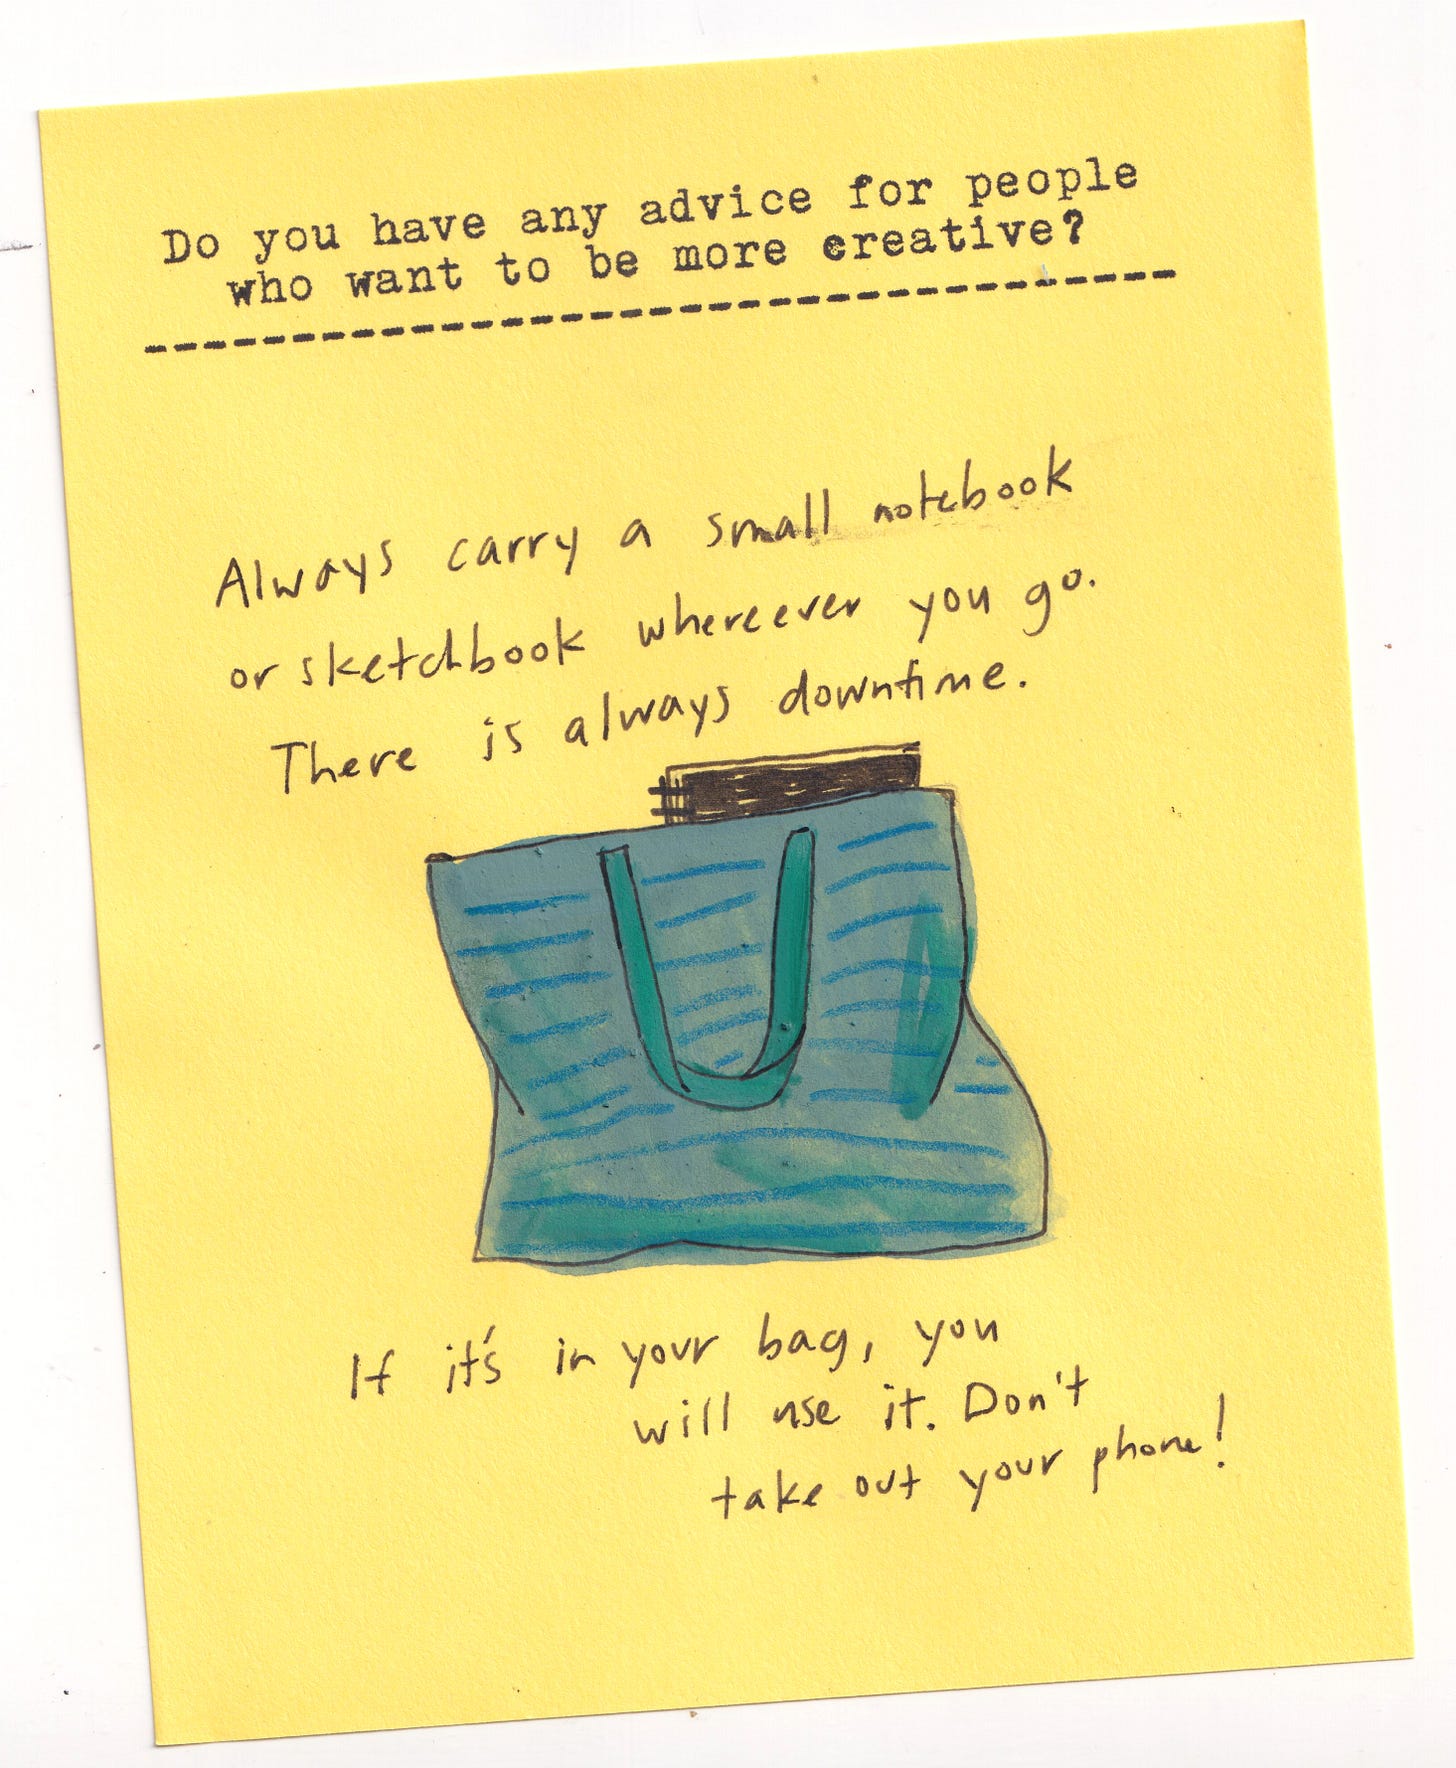 Do you have any advice for people
who want to be more creative?
Always carry a small notebook
or sketchbook whereever you go.
There is always downtime.
If it's in your bag, you
will use it. Don't
take out your phone!